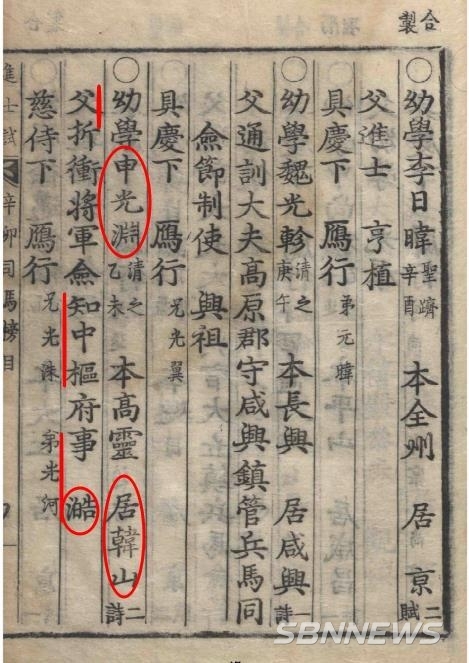 合製
○幼學李日暐 聖躋 辛酉 本全州 居 亰 二賦
父進士 亨植
具慶下 鴈行 弟元暐
○幼學魏光軫 清之 庚午 本長興 居咸興 一詩
父通訓大夫高原郡守咸興鎮管兵馬同
僉節制使 興祖
具慶下 鴈行 兄光翼
○幼學申光渊 清之 乙未 本高靈 居韓山 二詩
父折衝將軍僉知中樞府事 澔
慈侍下 鴈行 兄光洙 弟光河
進士試 辛卯司馬榜目
SBNNEWS